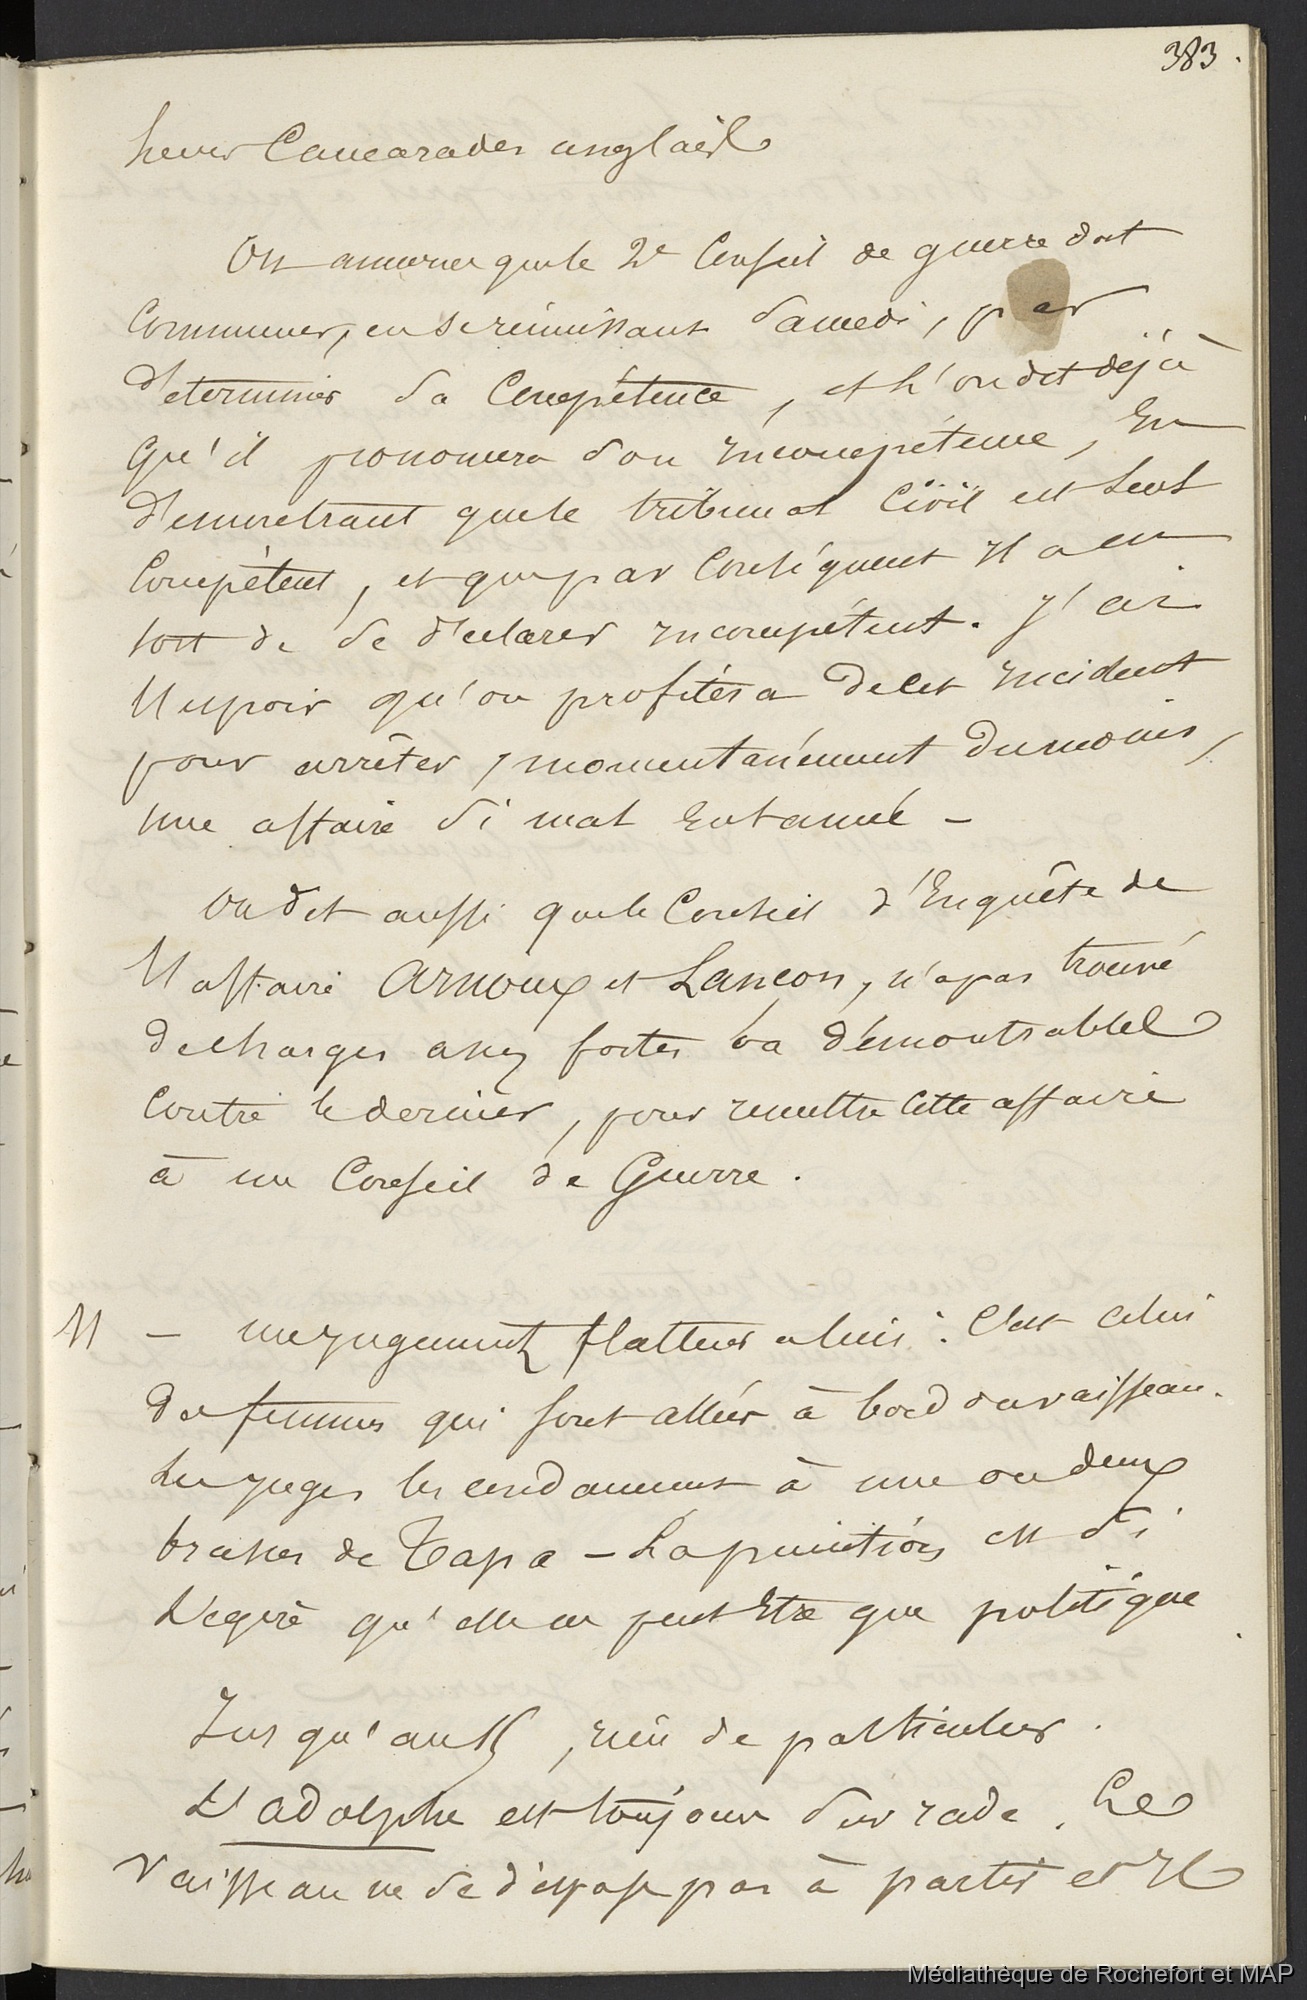 383.
leurs Camarades anglais
On annonce que le 2e Conseil de guerre doit
Commencer, en se réunissant Samedi, par
déterminer sa Compétence, et l'on dit déjà
qu'il prononcera son incompétence, En
démontrant que le tribunal Civil est seul
Compétent, et que par Conséquent il a eu
tort de se déclarer incompétent. J'ai
l'espoir qu'on profitera de cet incident
pour arrêter, momentanément du moins,
une affaire si mal entamée -
On dit aussi que le Conseil d'Enquête de
l'affaire Arnoux et Lancon, n'a pas trouvé
de charges assez fortes ou démontrables
Contre le dernier, pour remettre cette affaire
à un Conseil de Guerre.
11 - un jugement flatteur a lieu : C'est celui
des femmes qui sont allées à bord du vaisseau.
Les juges les condamnent à une ou deux
brasses de Tapa - La punition est si
légère qu'elle ne peut être que politique
Jusqu'au 15, rien de particulier.
L'adolphe est toujours sur rade. Le
vaisseau ne se dispose pas à partir et il
Médiathèque de Rochefort et MAP